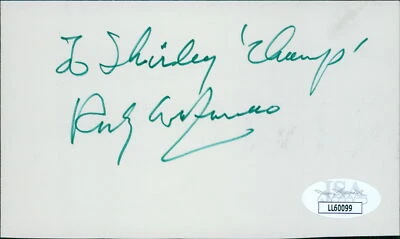 To Shirley 'Champ'
Rocky Graziano
JSA
LL60099